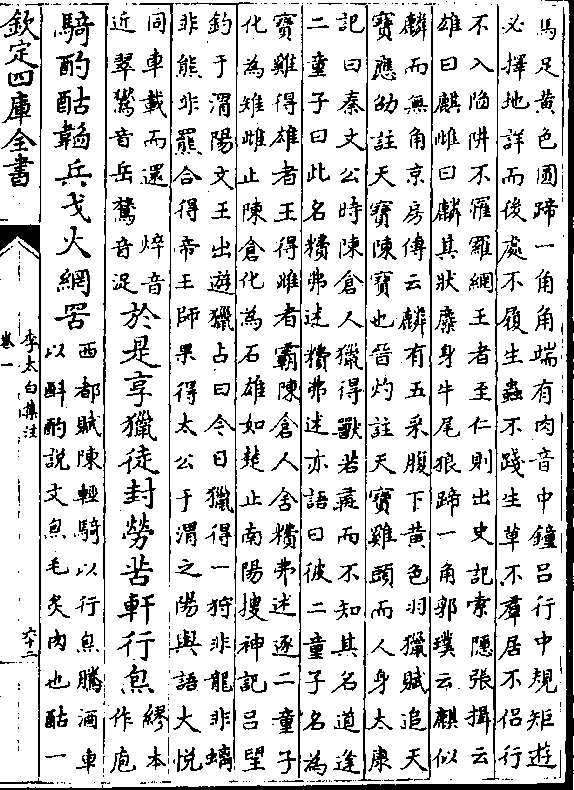 馬足黄色圓蹄一角角端有肉音中鐘吕行中規矩遊
必擇地詳而後處不履生蟲不踐生草不羣居不侣行
不入陷阱不罹羅網王者至仁則出史記索隱張揖云
雄曰麒雌曰麟其狀麋身牛尾狼蹄一角郭璞云麒似
麟而無角京房傳云麟有五采腹下黄色羽獵賦追天
寶應劭註天寶陳寶也晉灼註天寶雞頭而人身太康
記曰秦文公時陳倉人獵得獸若彘而不知其名道逢
二童子曰此名糭弗述糭弗述亦語曰彼二童子名為
寶雞得雄者王得雌者霸陳倉人舍糭弗述逐二童子
化為雉雌止陳倉化為石雄如楚止南陽搜神記吕望
釣于渭陽文王出遊獵占曰今日獵得一狩非龍非螭
非熊非羆合得帝王師果得太公于渭之陽與語大悦
同車載而還 焠音
近翠鷟音岳鷟音浞
於是享獵徒封勞苦軒行炰
繆本
作庖
騎酌酤韜兵戈火網罟
西都賦陳輕騎以行炰騰酒車
以斟酌説文炰毛炙肉也酤一
欽定四庫全書
李太白集注
卷一
六十二